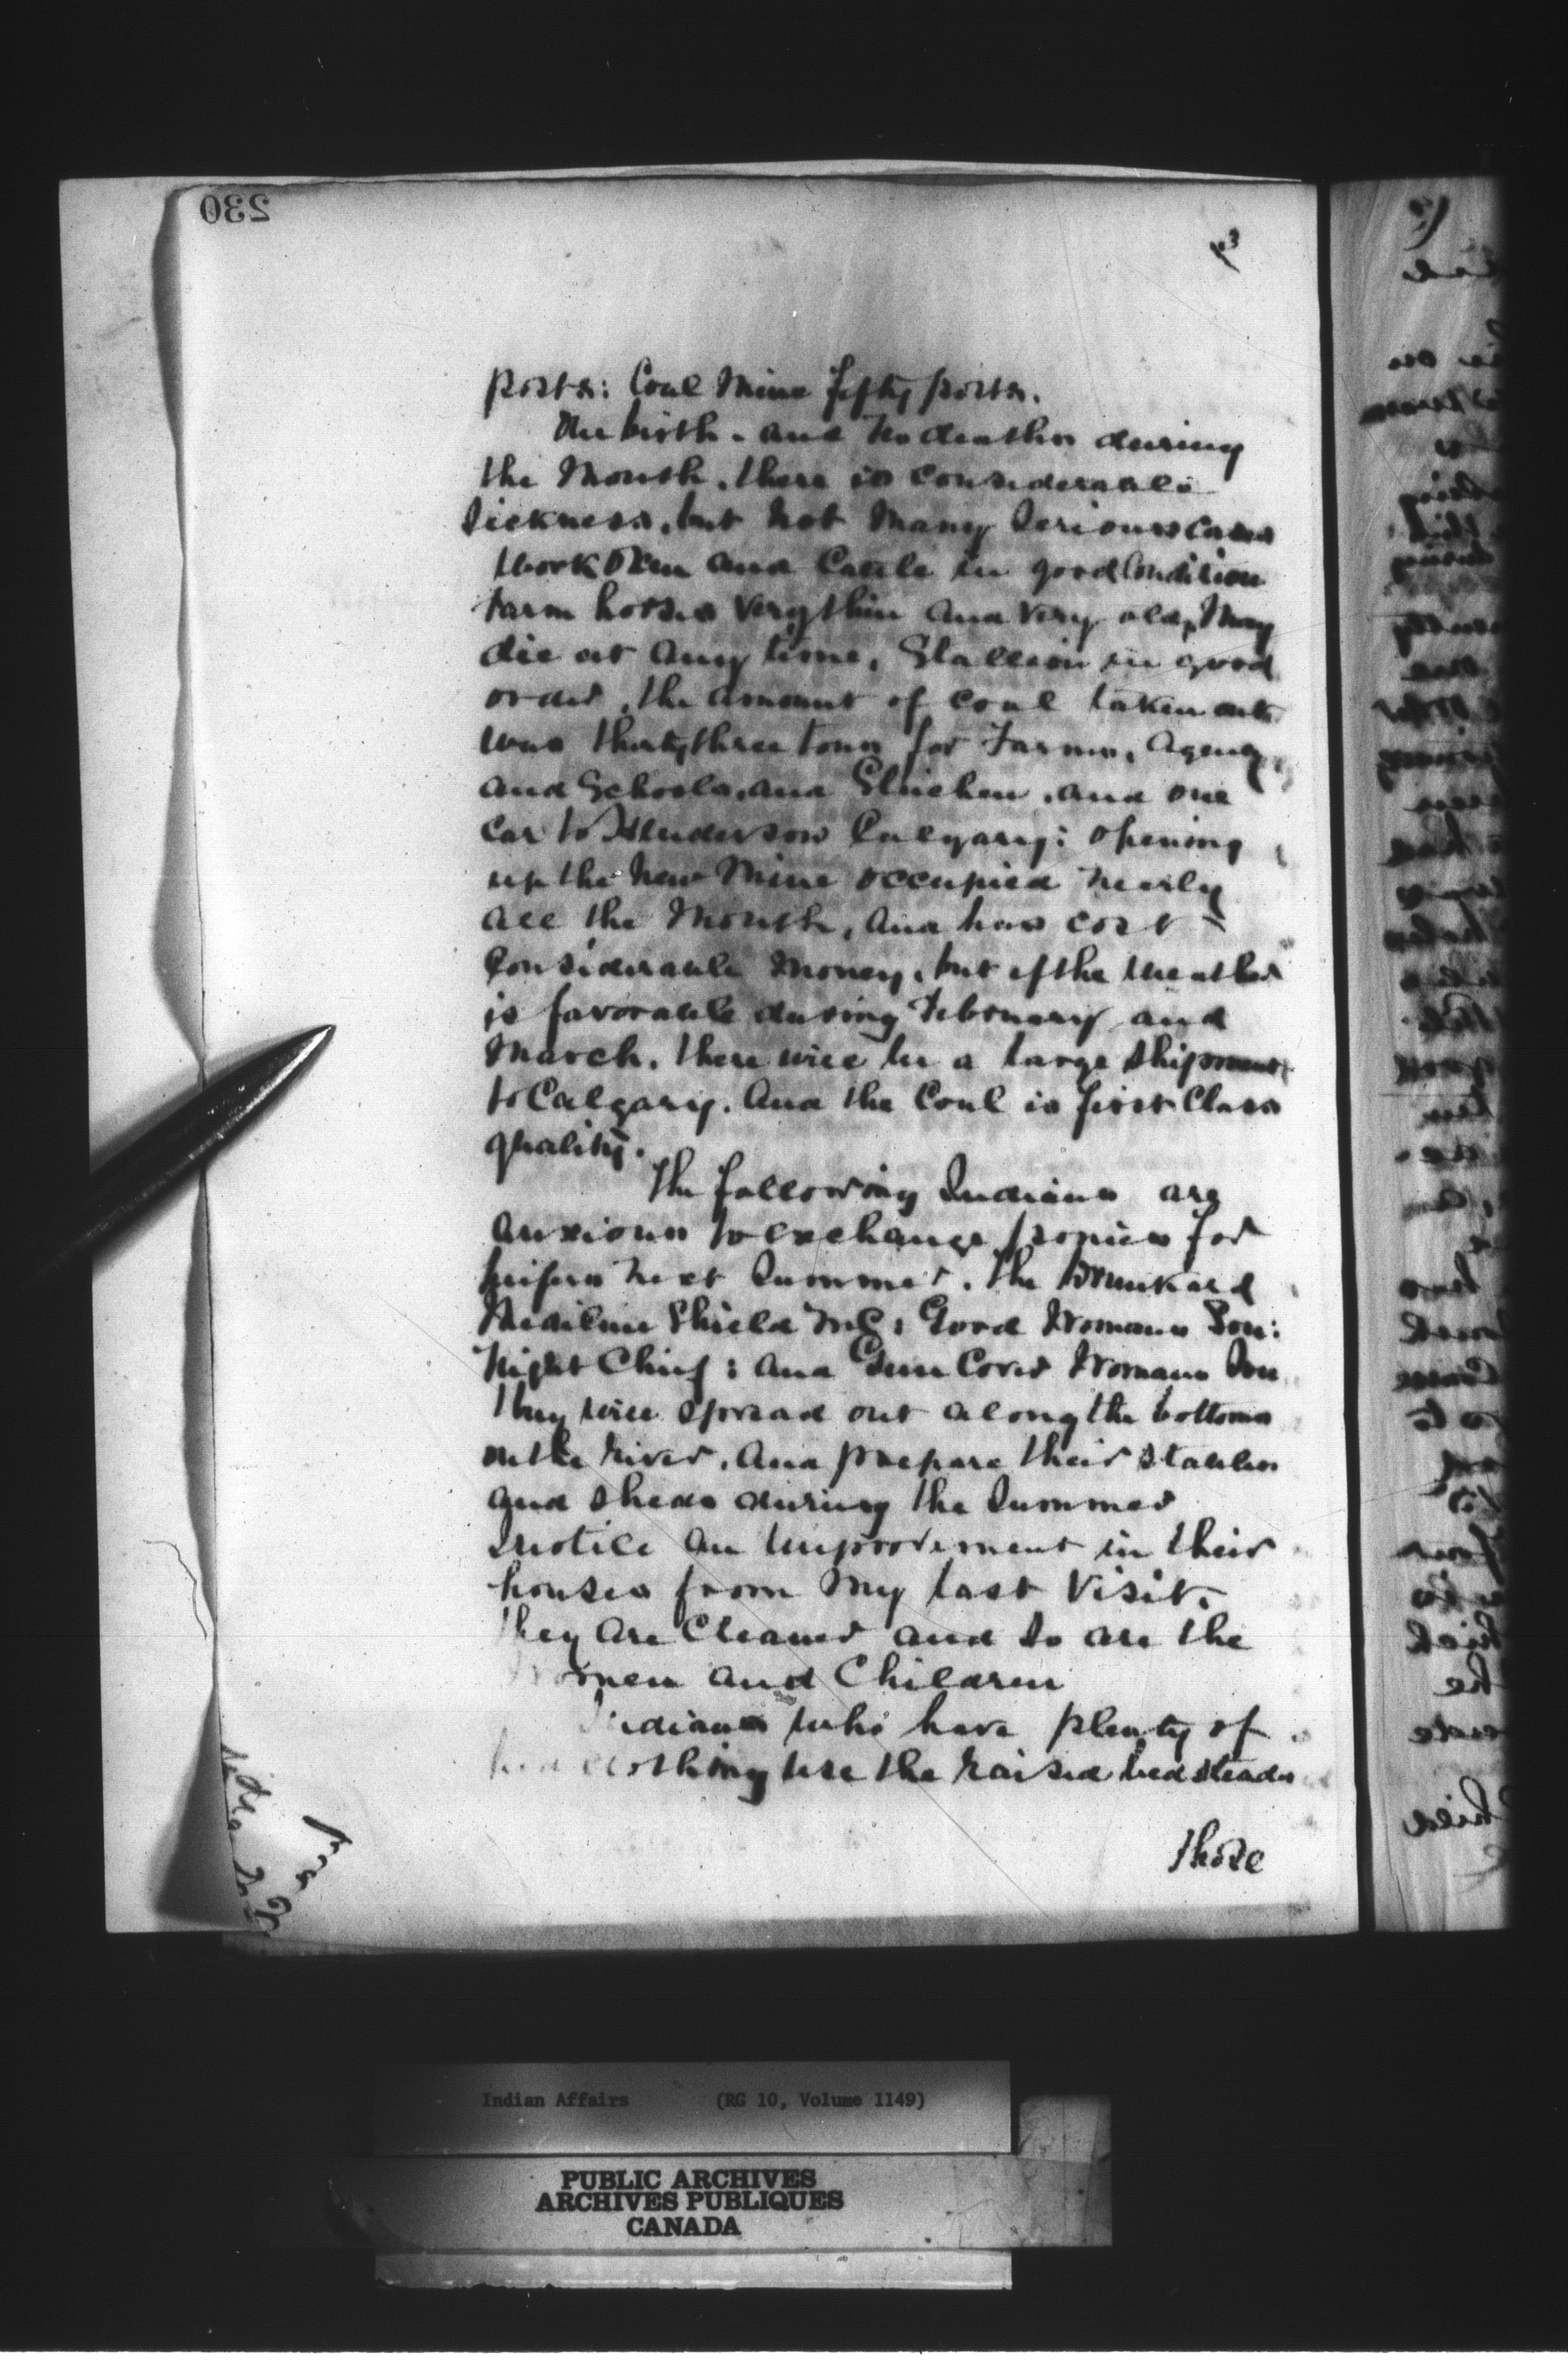 230
3
posts: Coal Mine fifty posts.
One birth. and no deaths during
the Month. there is Considerable
Sickness. but not Many Serious Cases
Work Oxen and Cattle in good Condition
farm horses Very thin and Very old, May
die at any time, Stallion in good
order. the amount of coal taken out
was thirty three tons for Farms. Agency
and Schools. and Gleichen. and one
Car to Henderson Calgary: opening
up the New Mine occupied nearly
all the Month. and has cost
Considerable Money. but if the Weather
is favorable during February and
March. there will be a large Shipment
to Calgary. And the Coal is first Class
quality.
The following Indians are
anxious to exchange ponies for
heifers next Summer. The Drunkard
Medicine Shield No 2: Good Womans Son:
Night Chief: and Gun Cover Womans Son
they will spread out along the bottoms
on the river. and prepare their stables
and sheds during the Summer
I notice an improvement in their
houses from My last Visit.
They are Cleaner and So are the
Women and Children
Indians who have plenty of
bed clothing use the raised bedsteads
those
Indian Affairs (RG 10, Volume 1149)
PUBLIC ARCHIVES
ARCHIVES PUBLIQUES
CANADA